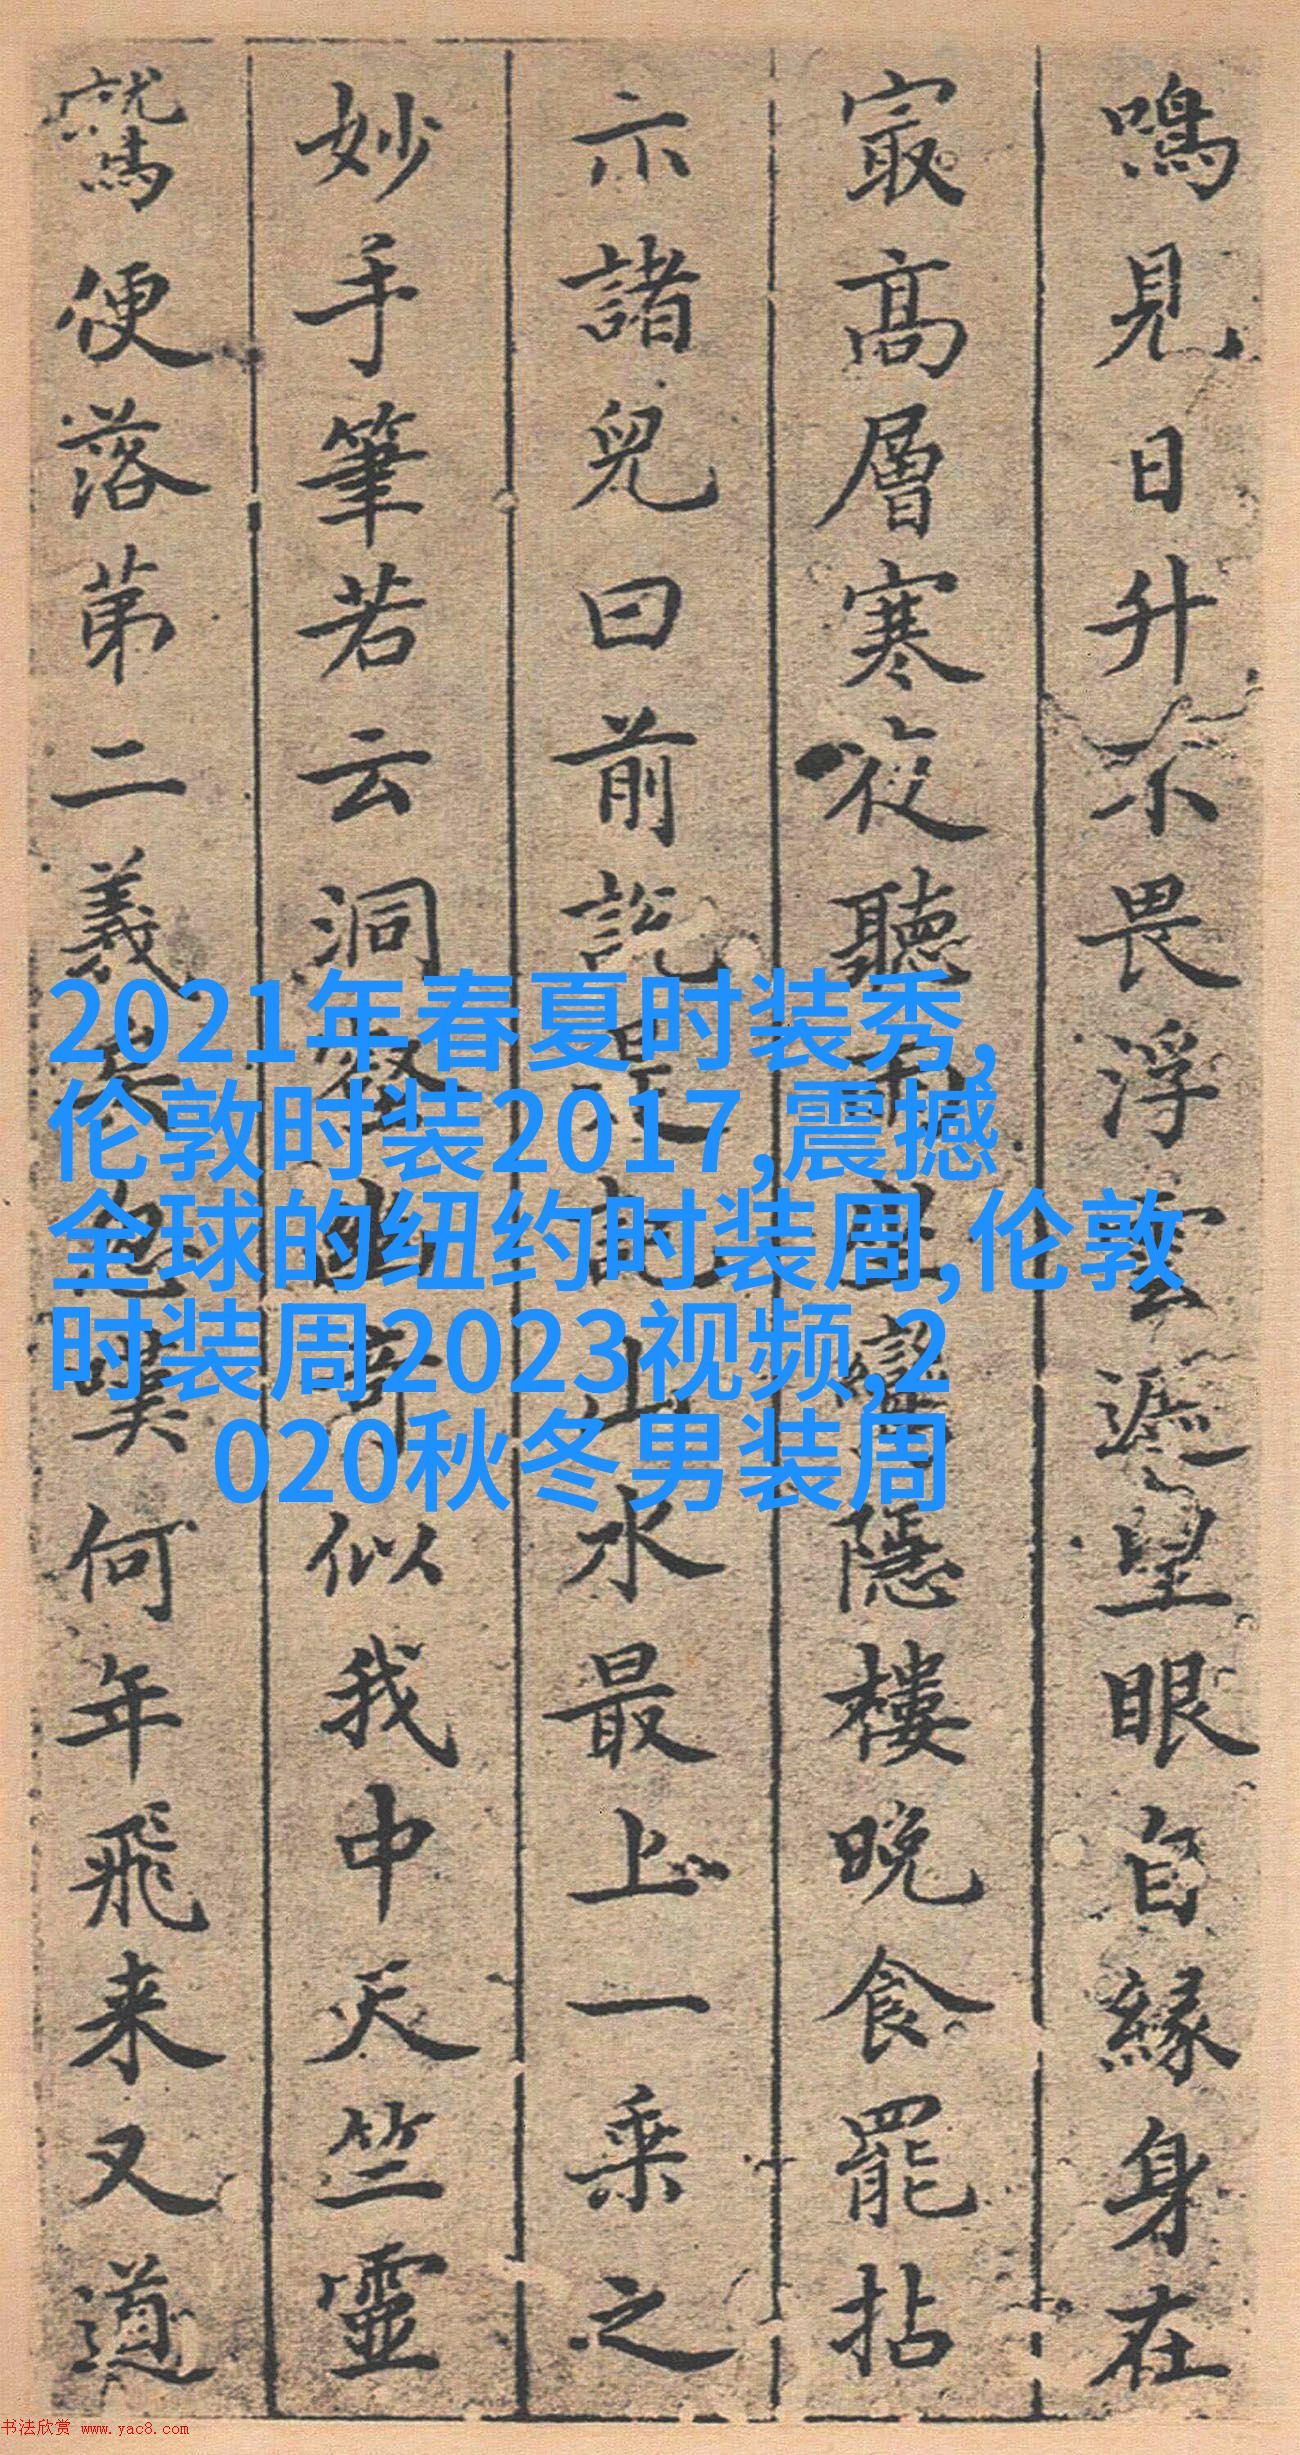 鳴見日升不畏浮雲遮望眼自緣身在
冣高層寒夜聽隱樓晚食罷拈
示諸兒曰前説是山水最上一乘之
妙手筆若云洞壑幽奇似我中天竺靈
鷲便落苐二義矣嘆何年飛来又道
2021年春夏时装秀,
伦敦时装2017,震撼
全球的纽约时装周,伦敦
时装周2023视频,2
020秋冬男装周
书法欣赏 www.yac8.com